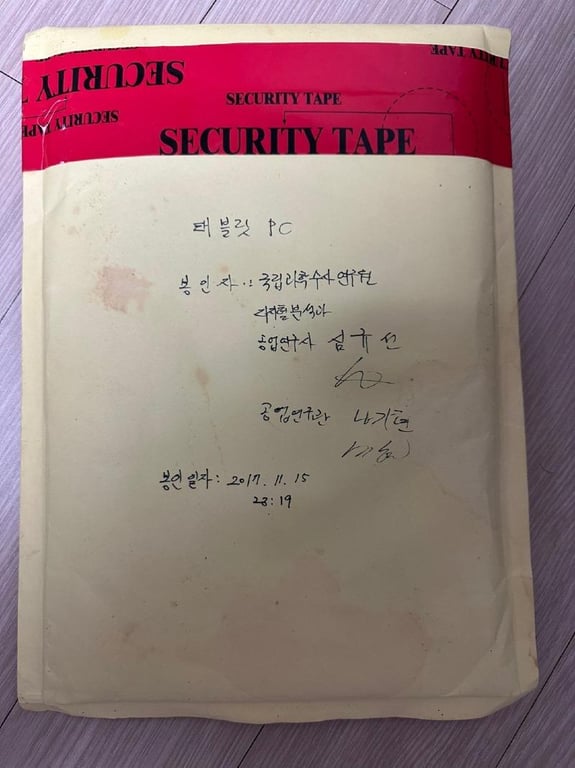 SECURITY T
SECURITY TAPE
RITY TAPE
SECURITY TAPE
SECURITY TAPE
태블릿 PC
봉인자 : 국립과학수사연구원
디지털분석과
공업연구사 심규선
공업연구관 나기현
봉인일자 : 2017. 11. 15
23:19